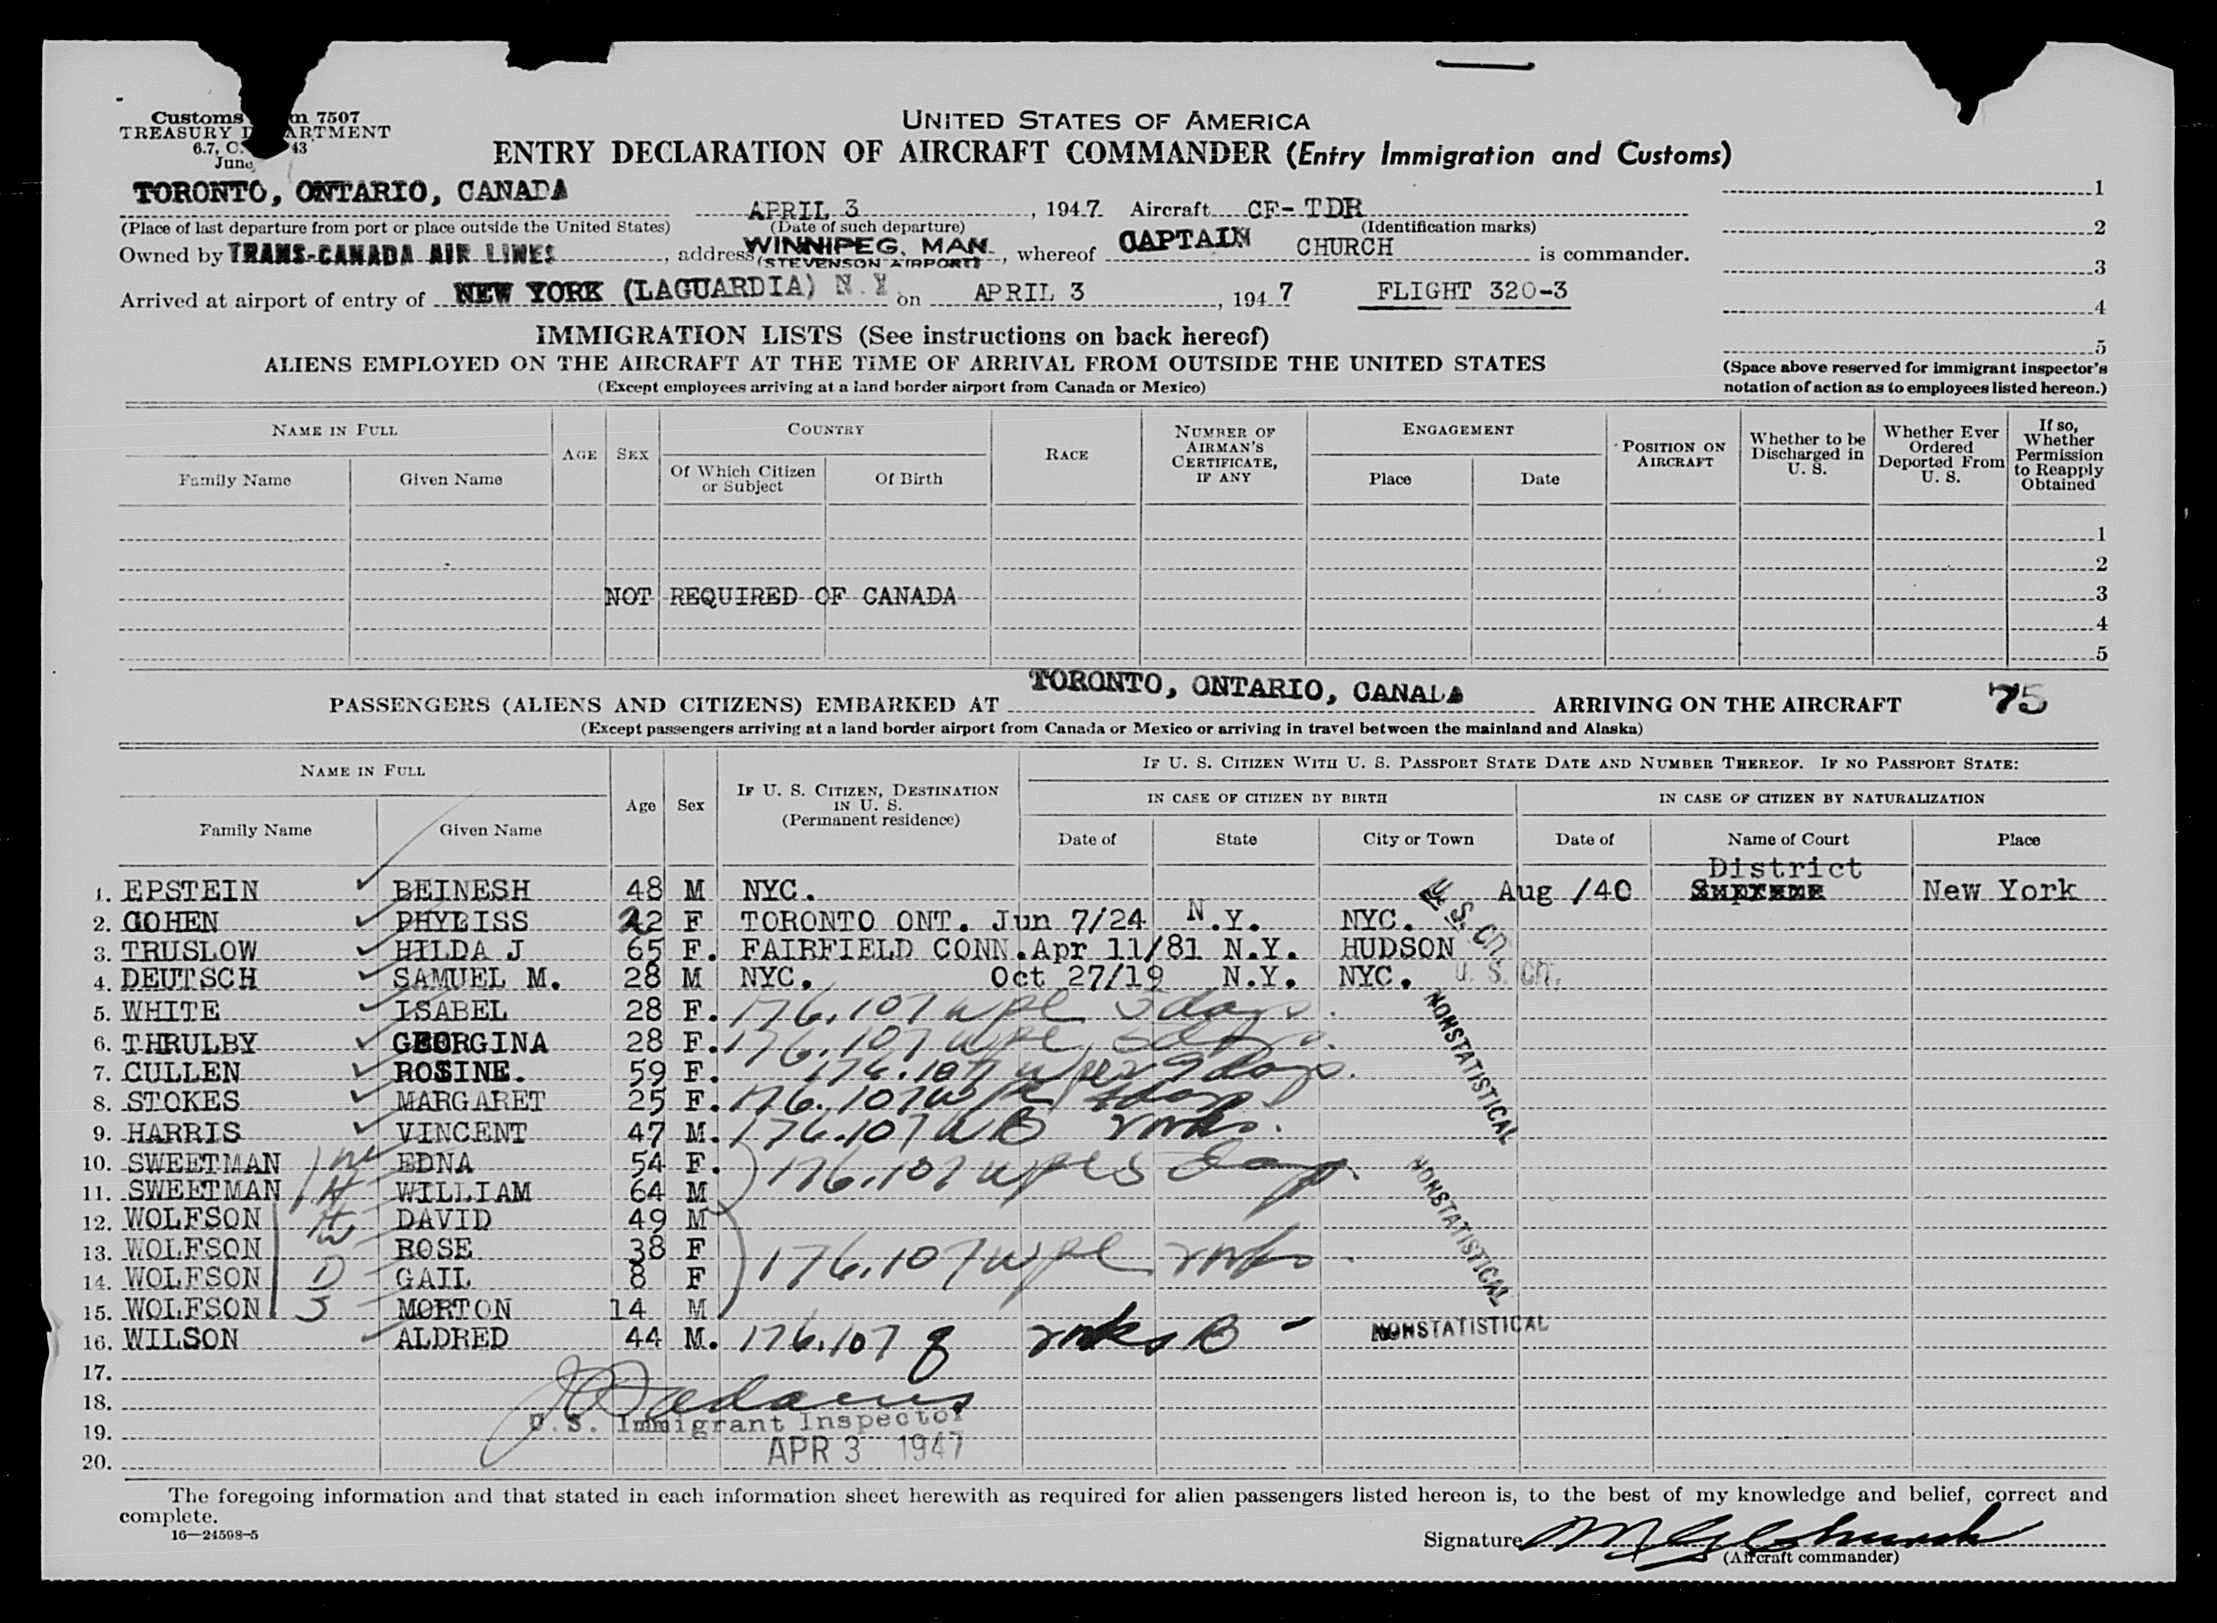 Customs m 7507
TREASURY D ARTMENT
6.7, C. 43
June
UNITED STATES OF AMERICA
ENTRY DECLARATION OF AIRCRAFT COMMANDER (Entry Immigration and Customs)
TORONTO, ONTARIO, CANADA
APRIL 3, 1947 Aircraft CF-TDR
(Place of last departure from port or place outside the United States) (Date of such departure) (Identification marks)
Owned by TRANS-CANADA AIR LINES, address WINNIPEG, MAN. (STEVENSON AIRPORT), whereof CAPTAIN CHURCH is commander.
Arrived at airport of entry of NEW YORK (LAGUARDIA) N.Y. on APRIL 3, 1947 FLIGHT 320-3
1
2
3
4
5
(Space above reserved for immigrant inspector's
notation of action as to employees listed hereon.)
IMMIGRATION LISTS (See instructions on back hereof)
ALIENS EMPLOYED ON THE AIRCRAFT AT THE TIME OF ARRIVAL FROM OUTSIDE THE UNITED STATES
(Except employees arriving at a land border airport from Canada or Mexico)
NAME IN FULL
Family Name Given Name
AGE SEX
COUNTRY
Of Which Citizen or Subject Of Birth
RACE
NUMBER OF AIRMAN'S CERTIFICATE, IF ANY
ENGAGEMENT
Place Date
POSITION ON AIRCRAFT
Whether to be Discharged in U. S.
Whether Ever Ordered Deported From U. S.
If so, Whether Permission to Reapply Obtained
1
2
NOT REQUIRED OF CANADA 3
4
5
PASSENGERS (ALIENS AND CITIZENS) EMBARKED AT TORONTO, ONTARIO, CANADA ARRIVING ON THE AIRCRAFT 75
(Except passengers arriving at a land border airport from Canada or Mexico or arriving in travel between the mainland and Alaska)
NAME IN FULL
Family Name Given Name
Age Sex
IF U. S. CITIZEN, DESTINATION IN U. S. (Permanent residence)
IF U. S. CITIZEN WITH U. S. PASSPORT STATE DATE AND NUMBER THEREOF. IF NO PASSPORT STATE:
IN CASE OF CITIZEN BY BIRTH IN CASE OF CITIZEN BY NATURALIZATION
Date of State City or Town Date of Name of Court Place
District
1. EPSTEIN BEINESH 48 M NYC. Aug /40 SUPREME New York
2. COHEN PHYLISS 22 F TORONTO ONT. Jun 7/24 N.Y. NYC. U. S. Cit.
3. TRUSLOW HILDA J 65 F. FAIRFIELD CONN. Apr 11/81 N.Y. HUDSON
4. DEUTSCH SAMUEL M. 28 M NYC. Oct 27/19 N.Y. NYC. U. S. Cit.
5. WHITE ISABEL 28 F. 176.107 wpl 5 days.
6. THRULBY GEORGINA 28 F. 176.107 wpl 5 days.
7. CULLEN ROSINE. 59 F. 176.107 days.
8. STOKES MARGARET 25 F. 176.107 days
NONSTATISTICAL
9. HARRIS VINCENT 47 M. 176.107
10. SWEETMAN EDNA 54 F.
11. SWEETMAN H WILLIAM 64 M 176.107 wpl 5 days.
12. WOLFSON H DAVID 49 M
NONSTATISTICAL
13. WOLFSON W ROSE 38 F
14. WOLFSON D GAIL 8 F 176.107 wpl
15. WOLFSON S MORTON 14 M
16. WILSON ALDRED 44 M. 176.107 B - NONSTATISTICAL
17.
18. Adams
19. U.S. Immigrant Inspector
APR 3 1947
20.
The foregoing information and that stated in each information sheet herewith as required for alien passengers listed hereon is, to the best of my knowledge and belief, correct and
complete.
16—24598-5
Signature Church
(Aircraft commander)